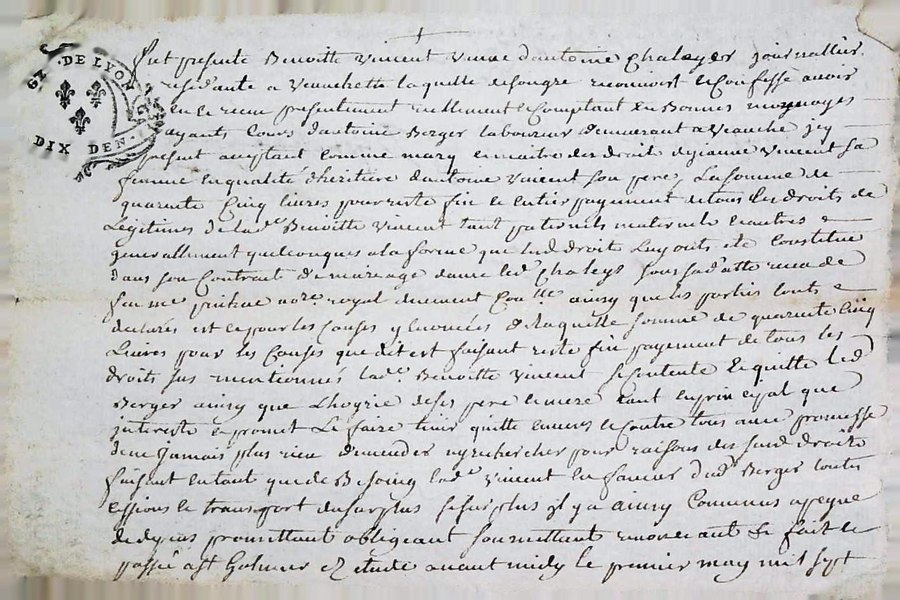 GZ. DE LYON
DIX DEN.
Fut presente Benoitte Vincent veuve d'antoine Chaleyer journallier
residante a Veauchette laquelle de son gre reconnoit et Confesse avoir
eu et receu presentement reellement et Comptant en Bonnes monnoyes
ayants Cours d'antoine Berger laboureur demeurant a Veauche jcy
present acceptant Comme mary et maitre des droit de jeanne Vincent sa
femme en qualité d'heritiere d'antoine Vincent son pere, La somme de
quarente Cinq livres pour reste fin et entier payement de tous les droits de
Légitimes de lade Benoitte Vincent tant paternels maternels et autres
generallement quelconques a la forme que lesd droit Luy ont ete Constitue
dans son Contrat de mariage avec led Chaleyer sous sa datte receu de
feu me notre royal duement Con ainsy que les parties l'ont
declarés est ce pour les Causes y Enoncées de laquelle somme de quarente Cinq
Livres pour les Causes que dit est faisant reste fin payement de tous les
droits sus mentionnés lade Benoitte Vincent se Contente et quitte led
Berger ainsy que L'hoyrie de ses pere et mere tant en principal que
interests et promet Le faire tenir quitte envers et Contre tous avec promesse
de ne jamais plus rien demander ny rechercher pour raisons des susd droits
faisant en tant que de Besoing lade Vincent en faveur dud Berger toutes
Cessions et transport de surplus se surplus jl y a ainsy Convenus a peyne
de depens promettant obligeant soumettant renonceant &c fait et
passé a St Galmier ez etude avant midy le premier may mil sept